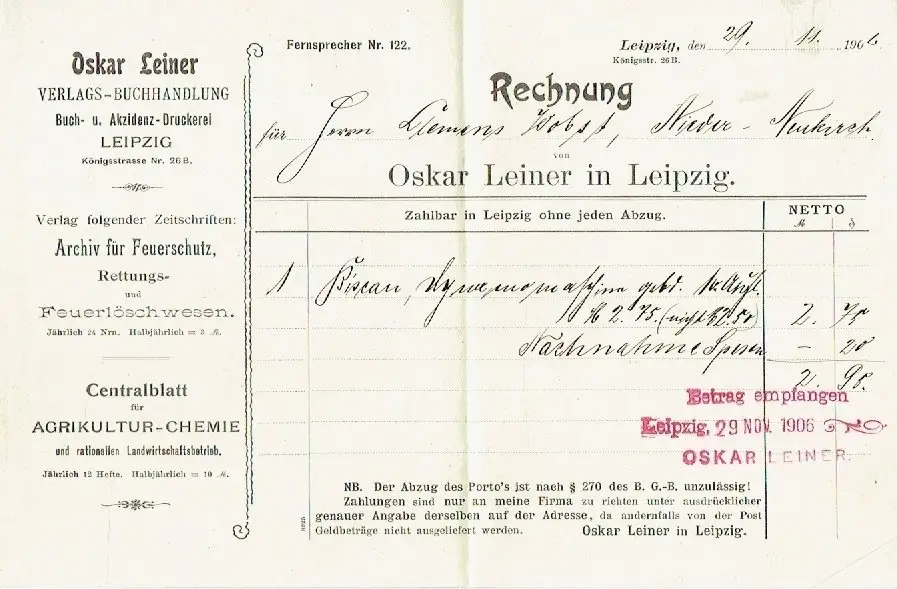 Oskar Leiner
VERLAGS-BUCHHANDLUNG
Buch- u. Akzidenz-Druckerei
LEIPZIG
Königsstrasse Nr. 26 B.
Verlag folgender Zeitschriften:
Archiv für Feuerschutz,
Rettungs-
und
Feuerlöschwesen.
Jährlich 24 Nrn. Halbjährlich = 3 M.
Centralblatt
für
AGRIKULTUR-CHEMIE
und rationellen Landwirtschaftsbetrieb.
Jährlich 12 Hefte. Halbjährlich = 10 M.
Fernsprecher Nr. 122.
Leipzig, den 29. 11. 1906
Königsstr. 26 B.
Rechnung
für Herrn Clemens Wobst, Nieder-Neukirch
von
Oskar Leiner in Leipzig.
Zahlbar in Leipzig ohne jeden Abzug. NETTO
M ₰
1 Biscan, Dynamomaschine gebd. Aufl.
M 2.75. (nicht 2.50) 2. 75
Nachnahme Spesen – 20
2. 95.
Betrag empfangen
Leipzig, 29 NOV. 1906
OSKAR LEINER.
NB. Der Abzug des Porto's ist nach § 270 des B. G.-B. unzulässig!
Zahlungen sind nur an meine Firma zu richten unter ausdrücklicher
genauer Angabe derselben auf der Adresse, da andernfalls von der Post
Geldbeträge nicht ausgeliefert werden. Oskar Leiner in Leipzig.